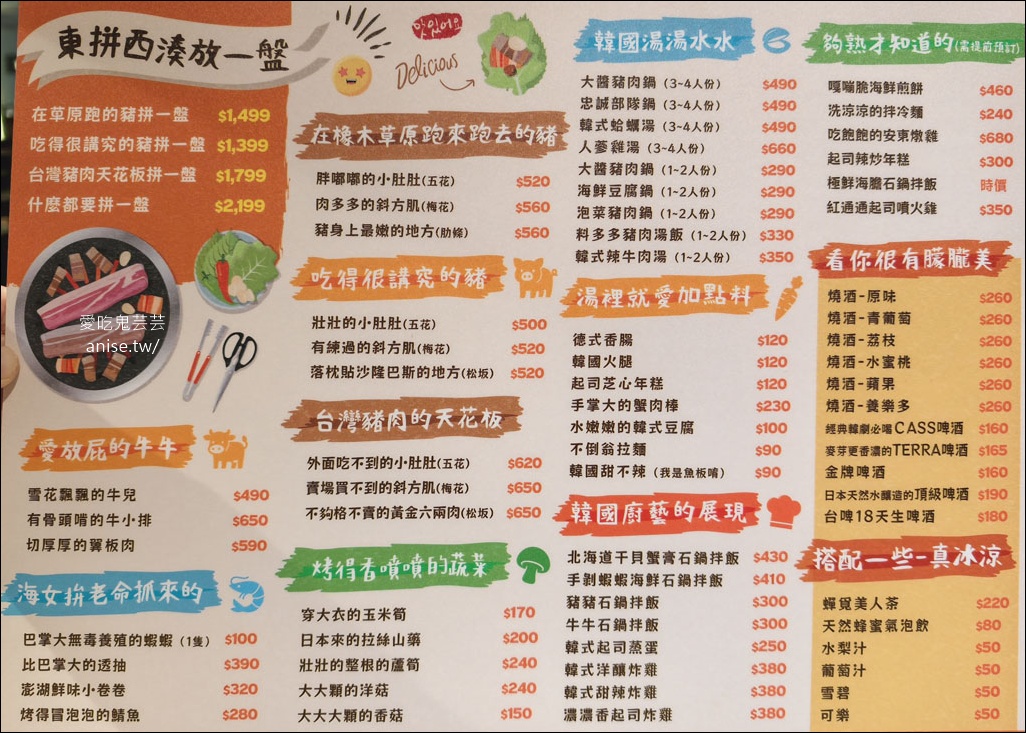 東拼西湊放一盤
在草原跑的豬拼一盤 $1,499
吃得很講究的豬拼一盤 $1,399
台灣豬肉天花板拼一盤 $1,799
什麼都要拼一盤 $2,199
愛吃鬼芸芸
anise.tw/
愛放屁的牛牛
雪花飄飄的牛兒 $490
有骨頭啃的牛小排 $650
切厚厚的翼板肉 $590
海女拚老命抓來的
巴掌大無毒養殖的蝦蝦（1隻） $100
比巴掌大的透抽 $390
澎湖鮮味小卷卷 $320
烤得冒泡泡的鯖魚 $280
맛있어요
Delicious
在橡木草原跑來跑去的豬
胖嘟嘟的小肚肚(五花) $520
肉多多的斜方肌(梅花) $560
豬身上最嫩的地方(肋條) $560
吃得很講究的豬
壯壯的小肚肚(五花) $500
有練過的斜方肌(梅花) $520
落枕貼沙隆巴斯的地方(松坂) $520
台灣豬肉的天花板
外面吃不到的小肚肚(五花) $620
賣場買不到的斜方肌(梅花) $650
不夠格不賣的黃金六兩肉(松坂) $650
烤得香噴噴的蔬菜
穿大衣的玉米筍 $170
日本來的拉絲山藥 $200
壯壯的整根的蘆筍 $240
大大顆的洋菇 $240
大大大顆的香菇 $150
韓國湯湯水水
大醬豬肉鍋（3~4人份） $490
忠誠部隊鍋（3~4人份） $490
韓式蛤蠣湯（3~4人份） $490
人蔘雞湯（3~4人份） $660
大醬豬肉鍋（1~2人份） $290
海鮮豆腐鍋（1~2人份） $290
泡菜豬肉鍋（1~2人份） $290
料多多豬肉湯飯（1~2人份） $330
韓式辣牛肉湯（1~2人份） $350
湯裡就愛加點料
德式香腸 $120
韓國火腿 $120
起司芝心年糕 $120
手掌大的蟹肉棒 $230
水嫩嫩的韓式豆腐 $100
不倒翁拉麵 $90
韓國甜不辣（我是魚板唷） $90
韓國廚藝的展現
北海道干貝蟹膏石鍋拌飯 $430
手剝蝦蝦海鮮石鍋拌飯 $410
豬豬石鍋拌飯 $300
牛牛石鍋拌飯 $300
韓式起司蒸蛋 $250
韓式洋釀炸雞 $380
韓式甜辣炸雞 $380
濃濃香起司炸雞 $380
夠熟才知道的(需提前預訂)
嘎嘣脆海鮮煎餅 $460
洗涼涼的拌冷麵 $240
吃飽飽的安東燉雞 $680
起司辣炒年糕 $300
極鮮海膽石鍋拌飯 時價
紅通通起司噴火雞 $350
看你很有朦朧美
燒酒-原味 $260
燒酒-青葡萄 $260
燒酒-荔枝 $260
燒酒-水蜜桃 $260
燒酒-蘋果 $260
燒酒-養樂多 $260
經典韓劇必喝CASS啤酒 $160
麥芽更香濃的TERRA啤酒 $165
金牌啤酒 $160
日本天然水釀造的頂級啤酒 $190
台啤18天生啤酒 $180
搭配一些-真冰涼
蟬覓美人茶 $220
天然蜂蜜氣泡飲 $80
水梨汁 $50
葡萄汁 $50
雪碧 $50
可樂 $50